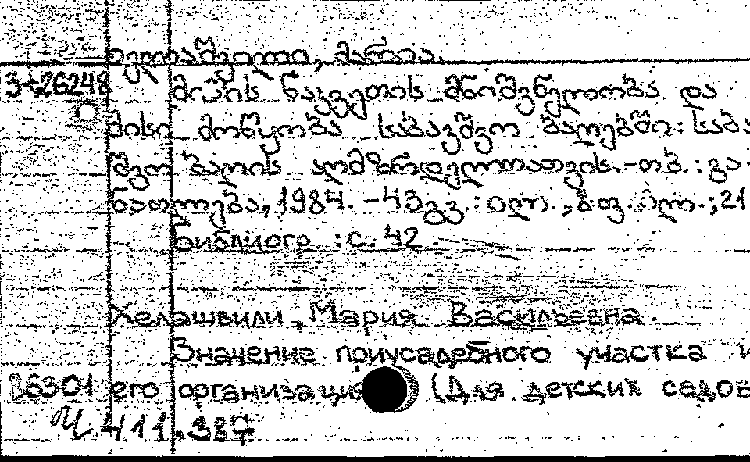 ხელაშვილი, მარია.
3-26248 მიწის ნაკვეთის მნიშვნელობა და
მისი მოწყობა საბავშვო ბაღებში: საბა
შვო ბაღის აღმზრდელთათვის.-თბ.: გა
ნათლება, 1984. - 43გვ.: ილ., ზ.ფ. ილ.; 21
Библиогр : с. 42.
Хелашвили, Мария Васильевна.
Значение приусадебного участка и
86301 его организация (Для детских садов
411.387